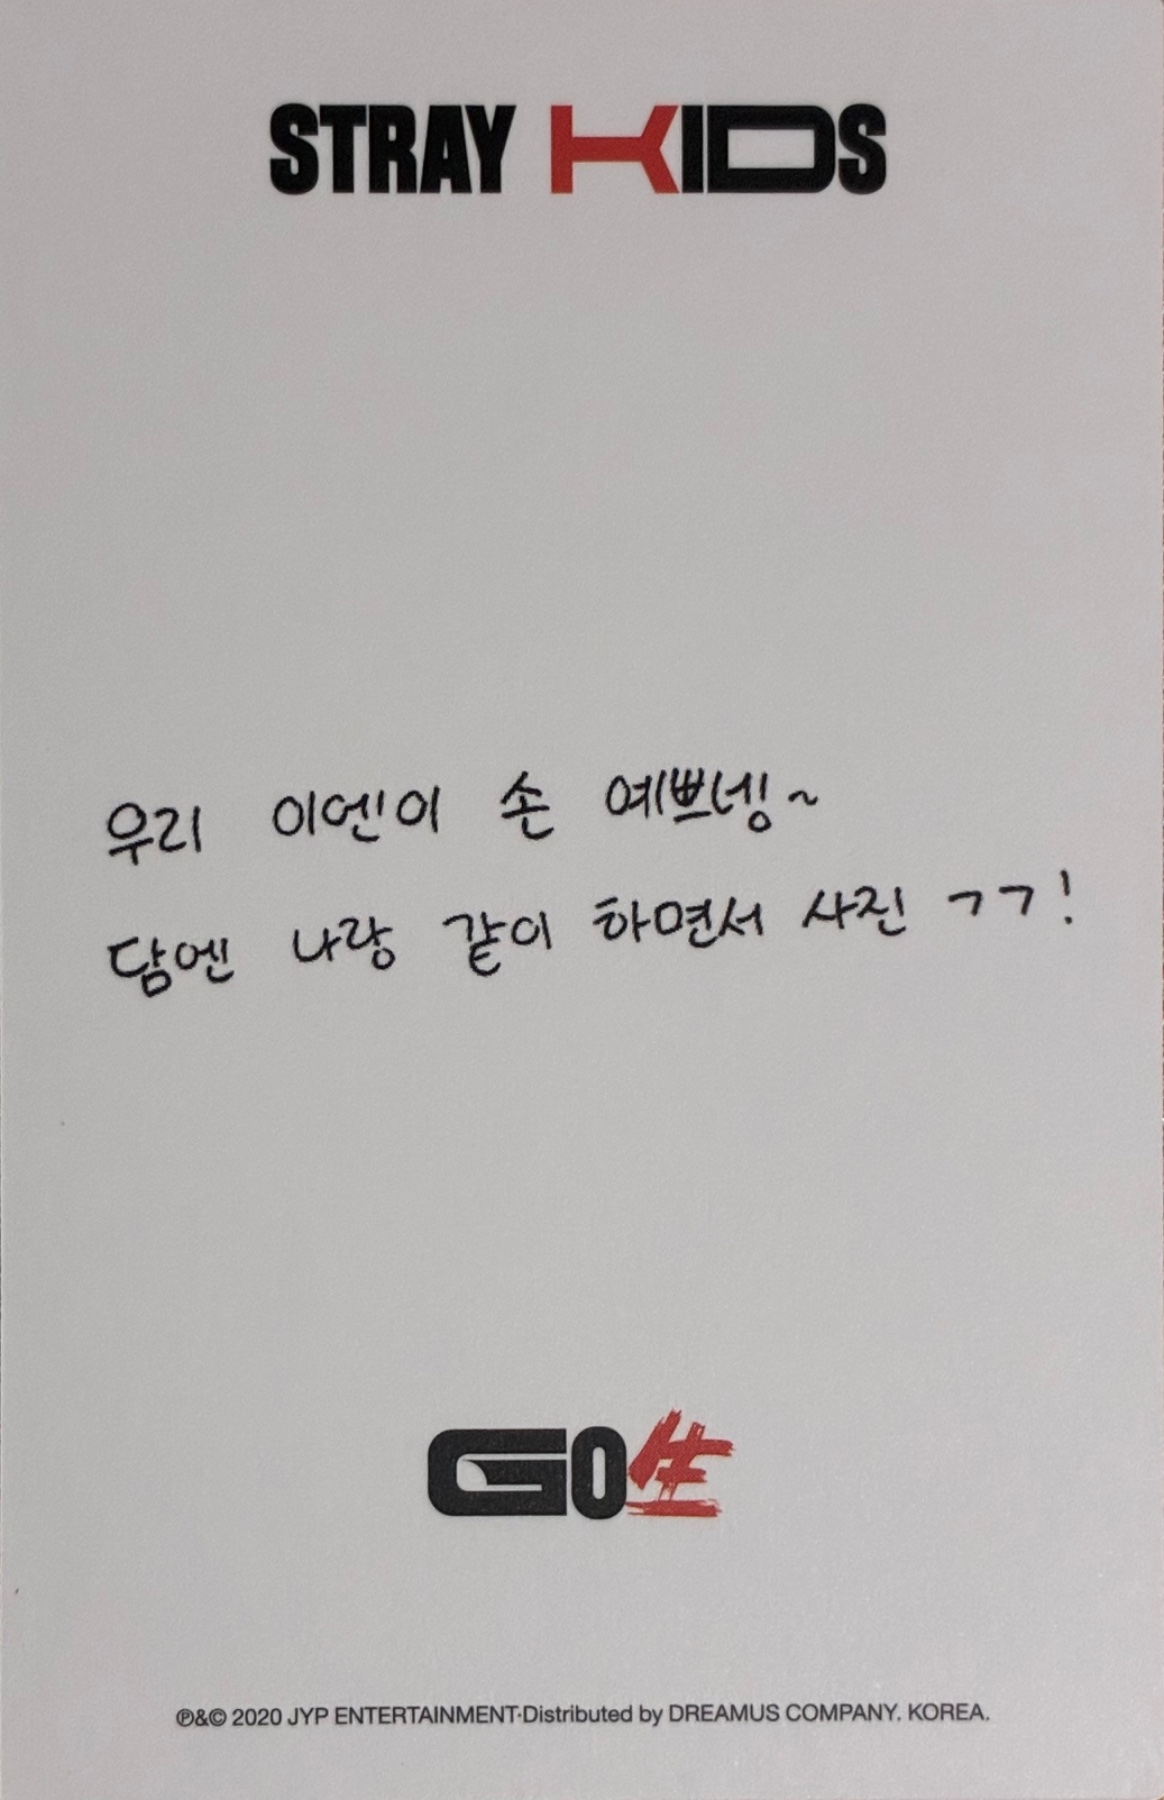 STRAY KIDS
우리 이엔이 손 예쁘넹~
담엔 나랑 같이 하면서 사진 ㄱㄱ!
GO生
℗&© 2020 JYP ENTERTAINMENT·Distributed by DREAMUS COMPANY. KOREA.